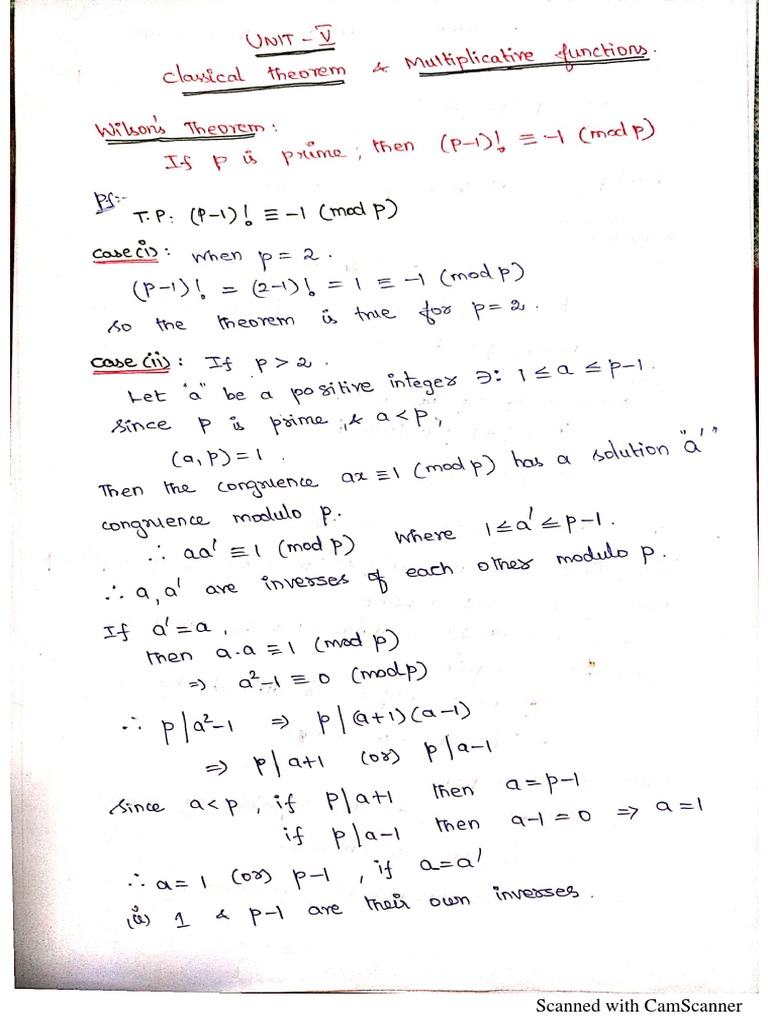 UNIT - V
Classical theorem & Multiplicative functions.
Wilson's Theorem:
If p is prime, then (p-1)! ≡ -1 (mod p)
Pf:-
T.P: (P-1)! ≡ -1 (mod p)
case(i): when p = 2.
(p-1)! = (2-1)! = 1 ≡ -1 (mod p)
so the theorem is true for p = 2.
case (ii): If p > 2.
Let "a" be a positive integer ∋: 1 ≤ a ≤ p-1.
since p is prime, & a < p,
(a, p) = 1.
Then the congruence ax ≡ 1 (mod p) has a solution "a'"
congruence modulo p.
∴ aa' ≡ 1 (mod p) where 1 ≤ a' ≤ p-1.
∴ a, a' are inverses of each other modulo p.
If a' = a,
then a.a ≡ 1 (mod p)
⇒ a²-1 ≡ 0 (mod p)
∴ p/a²-1 ⇒ p/(a+1)(a-1)
⇒ p/a+1 (or) p/a-1
since a<p, if p/a+1 then a = p-1
if p/a-1 then a-1 = 0 ⇒ a = 1
∴ a = 1 (or) p-1, if a = a'
(ie) 1 & p-1 are their own inverses.
Scanned with CamScanner